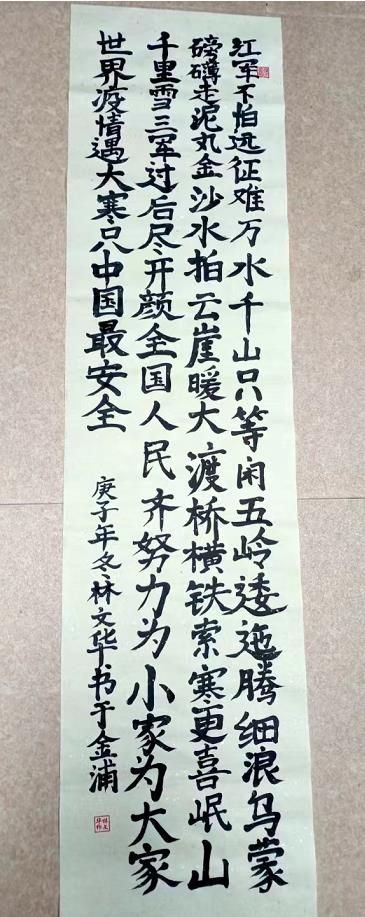 江军不怕远征难万水千山只等闲五岭逶迤腾细浪乌蒙
磅礴走泥丸金沙水拍云崖暖大渡桥横铁索寒更喜岷山
千里雪三军过后尽开颜全国人民齐努力为小家为大家
世界疫情遇大寒只中国最安全
庚子年冬林文华书于金浦